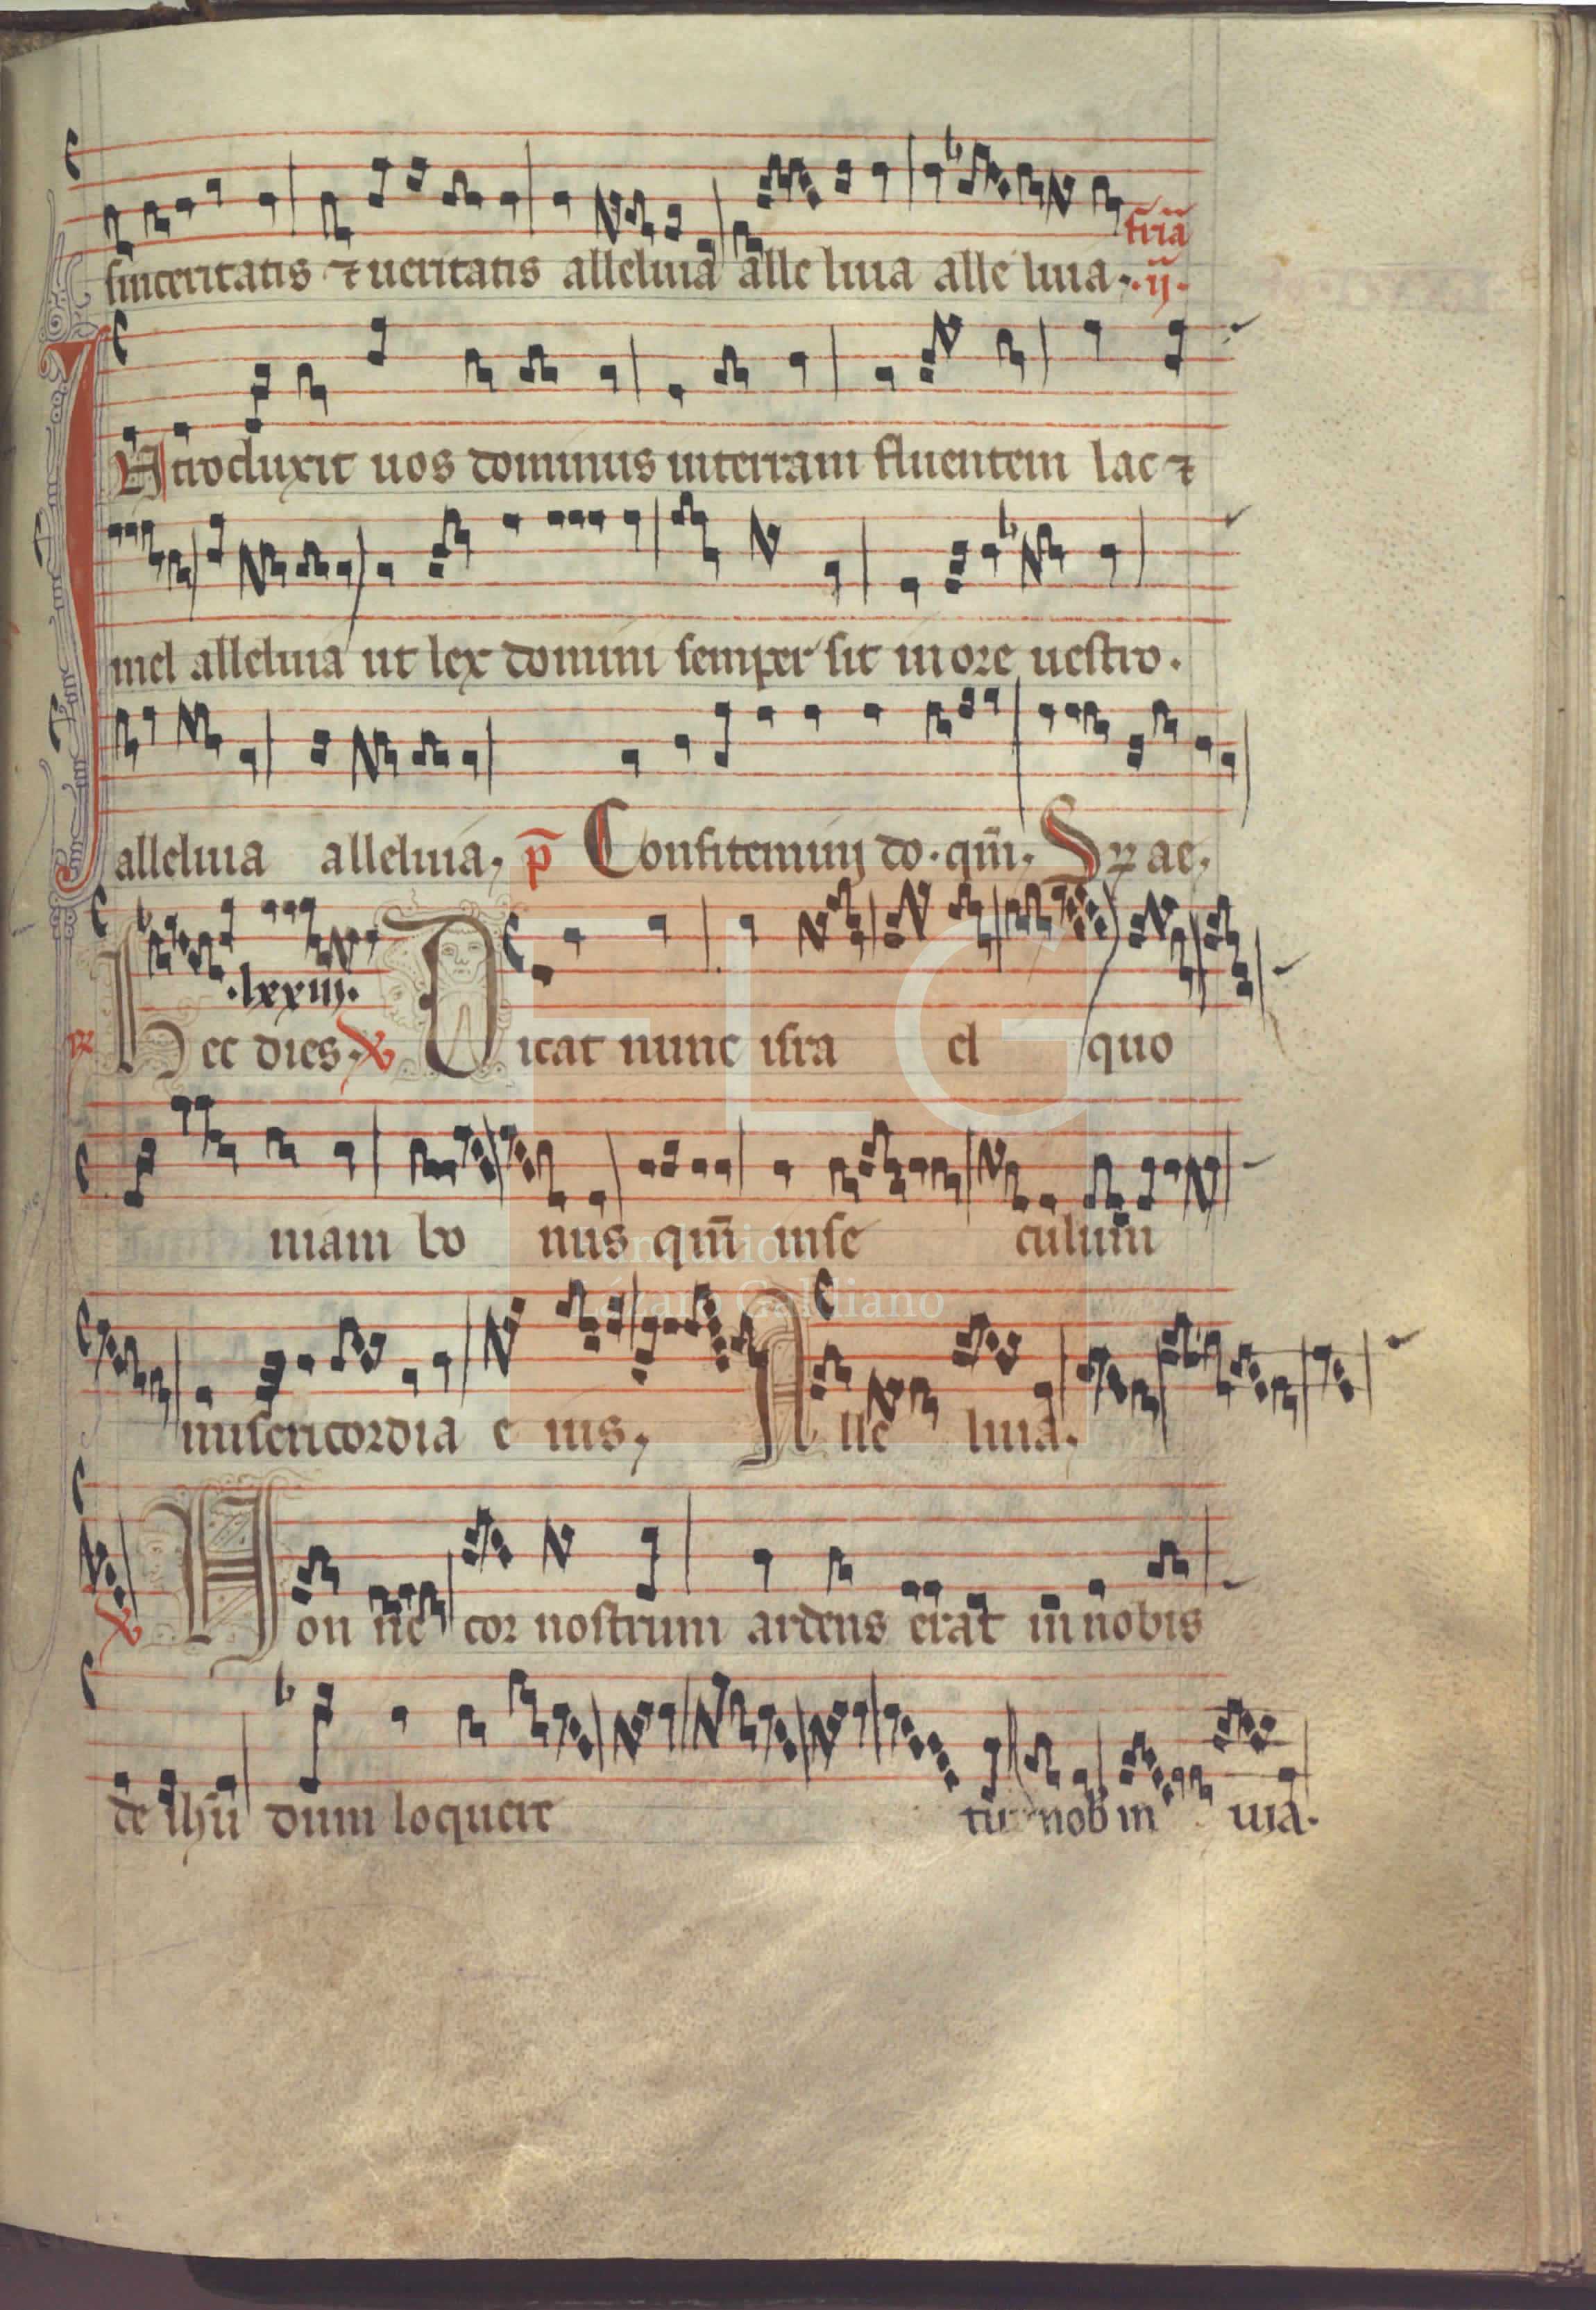 sinceritatis ⁊ ueritatis alleluia alle luia alle luia. fria ·ij·
INtroduxit uos dominus interram fluentem lac ⁊
mel alleluia ut lex domini semper sit in ore uestro.
alleluia alleluia, p̄ Confitemini do. qm̄. Sp ae,
·lxxiii·
Hec dies. ℣ Dicat nunc isra el quo
niam bo nus qm̄ inse culum
misericordia e ius, Alle luia.
℣ Non ne cor nostrum ardens erat in nobis
de ihū dum loquere tur nob in uia.
FLG
Fundación
Lázaro Galdiano